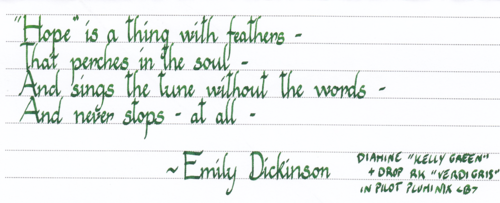 "Hope" is a thing with feathers -
That perches in the soul -
And sings the tune without the words -
And never stops - at all -
~Emily Dickinson
DIAMINE "KELLY GREEN"
+ DROP RK "VERDIGRIS"
IN PILOT PLUMINIX <B>